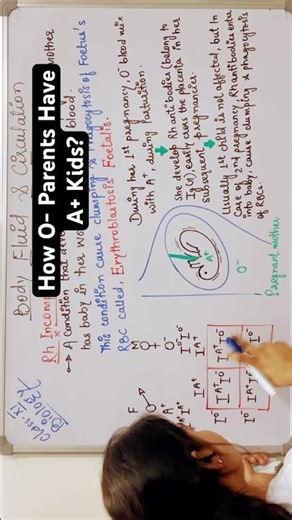 How O- Parents Have
A+ Kids?
Body Fluid & Circulation
Class-XI
Rh Incom
→ A condition that deve
has baby in her wo
blood.
This condition cause clumping & phagocytosis of Foetus's
RBC called, Erythroblastosis Foetalis.
F
M
O
A+
O-
I°
I°
I A+
During her 1st pregnancy, O- blood mix
with A+, during Parturition.
She develop Rh antibodies (belong to
Ig(γ), easily cross the placenta in her
subsequent pregnancies.
Usually 1st child is not affected, but In
Case of 2nd pregnancy Rh antibodies enter
into baby, cause clumping & phagocytosis
of RBCs.
A+
O-
Pregnant mother